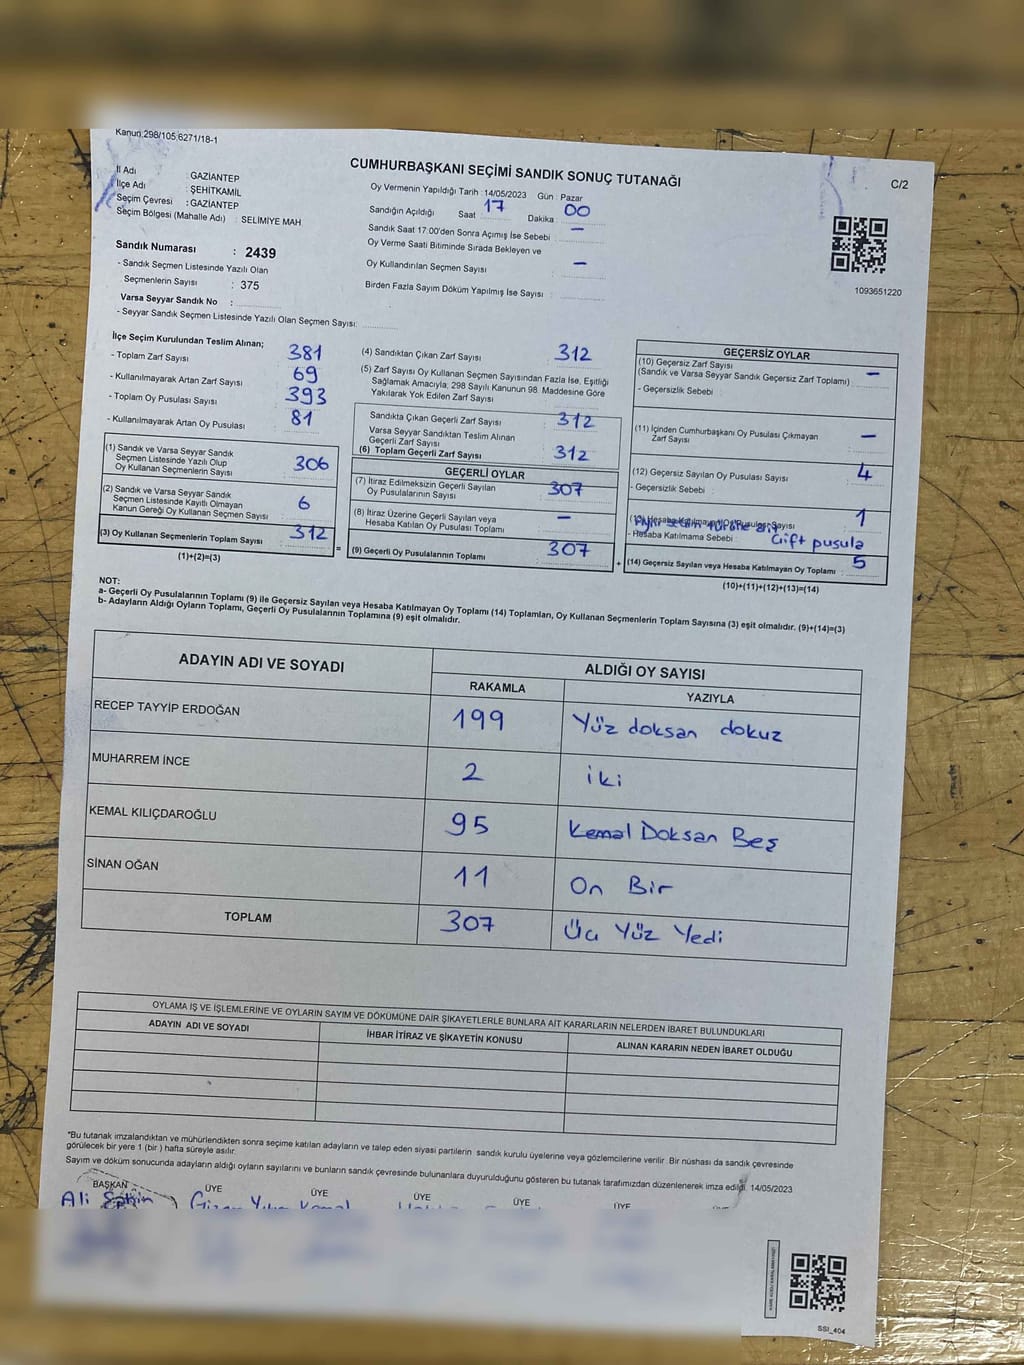 Kanun:298/105,6271/18-1
CUMHURBAŞKANI SEÇİMİ SANDIK SONUÇ TUTANAĞI
C/2
İl Adı GAZİANTEP
İlçe Adı : ŞEHİTKAMİL
Seçim Çevresi : GAZİANTEP
Seçim Bölgesi (Mahalle Adı) : SELİMİYE MAH
Sandık Numarası : 2439
- Sandık Seçmen Listesinde Yazılı Olan
Seçmenlerin Sayısı : 375
Varsa Seyyar Sandık No :
- Seyyar Sandık Seçmen Listesinde Yazılı Olan Seçmen Sayısı:
Oy Vermenin Yapıldığı Tarih : 14/05/2023 Gün : Pazar
Sandığın Açıldığı Saat 17 Dakika : 00
Sandık Saat 17:00'den Sonra Açımış İse Sebebi : -
Oy Verme Saati Bitiminde Sırada Bekleyen ve
Oy Kullandırılan Seçmen Sayısı : -
Birden Fazla Sayım Döküm Yapılmış İse Sayısı :
1093651220
İlçe Seçim Kurulundan Teslim Alınan;
- Toplam Zarf Sayısı 381
- Kullanılmayarak Artan Zarf Sayısı 69
- Toplam Oy Pusulası Sayısı 393
- Kullanılmayarak Artan Oy Pusulası 81
(1) Sandık ve Varsa Seyyar Sandık
Seçmen Listesinde Yazılı Olup
Oy Kullanan Seçmenlerin Sayısı 306
(2) Sandık ve Varsa Seyyar Sandık
Seçmen Listesinde Kayıtlı Olmayan
Kanun Gereği Oy Kullanan Seçmen Sayısı 6
(3) Oy Kullanan Seçmenlerin Toplam Sayısı 312
(1)+(2)=(3)
=
(4) Sandıktan Çıkan Zarf Sayısı 312
(5) Zarf Sayısı Oy Kullanan Seçmen Sayısından Fazla İse, Eşitliği
Sağlamak Amacıyla; 298 Sayılı Kanunun 98. Maddesine Göre
Yakılarak Yok Edilen Zarf Sayısı
Sandıkta Çıkan Geçerli Zarf Sayısı 312
Varsa Seyyar Sandıktan Teslim Alınan
Geçerli Zarf Sayısı
(6) Toplam Geçerli Zarf Sayısı 312
GEÇERLİ OYLAR
(7) İtiraz Edilmeksizin Geçerli Sayılan
Oy Pusulalarının Sayısı 307
(8) İtiraz Üzerine Geçerli Sayılan veya
Hesaba Katılan Oy Pusulası Toplamı -
(9) Geçerli Oy Pusulalarının Toplamı 307
+
GEÇERSİZ OYLAR
(10) Geçersiz Zarf Sayısı
(Sandık ve Varsa Seyyar Sandık Geçersiz Zarf Toplamı) -
- Geçersizlik Sebebi :
(11) İçinden Cumhurbaşkanı Oy Pusulası Çıkmayan
Zarf Sayısı -
(12) Geçersiz Sayılan Oy Pusulası Sayısı 4
- Geçersizlik Sebebi :
(13) Hesaba Katılmayan Oy Pusulası Sayısı 1
- Hesaba Katılmama Sebebi : Çift pusula
(14) Geçersiz Sayılan veya Hesaba Katılmayan Oy Toplamı 5
(10)+(11)+(12)+(13)=(14)
NOT:
a- Geçerli Oy Pusulalarının Toplamı (9) ile Geçersiz Sayılan veya Hesaba Katılmayan Oy Toplamı (14) Toplamları, Oy Kullanan Seçmenlerin Toplam Sayısına (3) eşit olmalıdır. (9)+(14)=(3)
b- Adayların Aldığı Oyların Toplamı, Geçerli Oy Pusulalarının Toplamına (9) eşit olmalıdır.
ADAYIN ADI VE SOYADI
ALDIĞI OY SAYISI
RAKAMLA YAZIYLA
RECEP TAYYİP ERDOĞAN 199 Yüz doksan dokuz
MUHARREM İNCE 2 iki
KEMAL KILIÇDAROĞLU 95 Kemal Doksan Beş
SİNAN OĞAN 11 On Bir
TOPLAM 307 Üç Yüz Yedi
OYLAMA İŞ VE İŞLEMLERİNE VE OYLARIN SAYIM VE DÖKÜMÜNE DAİR ŞİKAYETLERLE BUNLARA AİT KARARLARIN NELERDEN İBARET BULUNDUKLARI
ADAYIN ADI VE SOYADI İHBAR İTİRAZ VE ŞİKAYETİN KONUSU ALINAN KARARIN NEDEN İBARET OLDUĞU
*Bu tutanak imzalandıktan ve mühürlendikten sonra seçime katılan adayların ve talep eden siyasi partilerin sandık kurulu üyelerine veya gözlemcilerine verilir. Bir nüshası da sandık çevresinde
görülecek bir yere 1 (bir ) hafta süreyle asılır.
Sayım ve döküm sonucunda adayların aldığı oyların sayılarını ve bunların sandık çevresinde bulunanlara duyurulduğunu gösteren bu tutanak tarafımızdan düzenlenerek imza edildi. 14/05/2023
BAŞKAN ÜYE ÜYE ÜYE ÜYE ÜYE
Ali Şahin
SSI_404